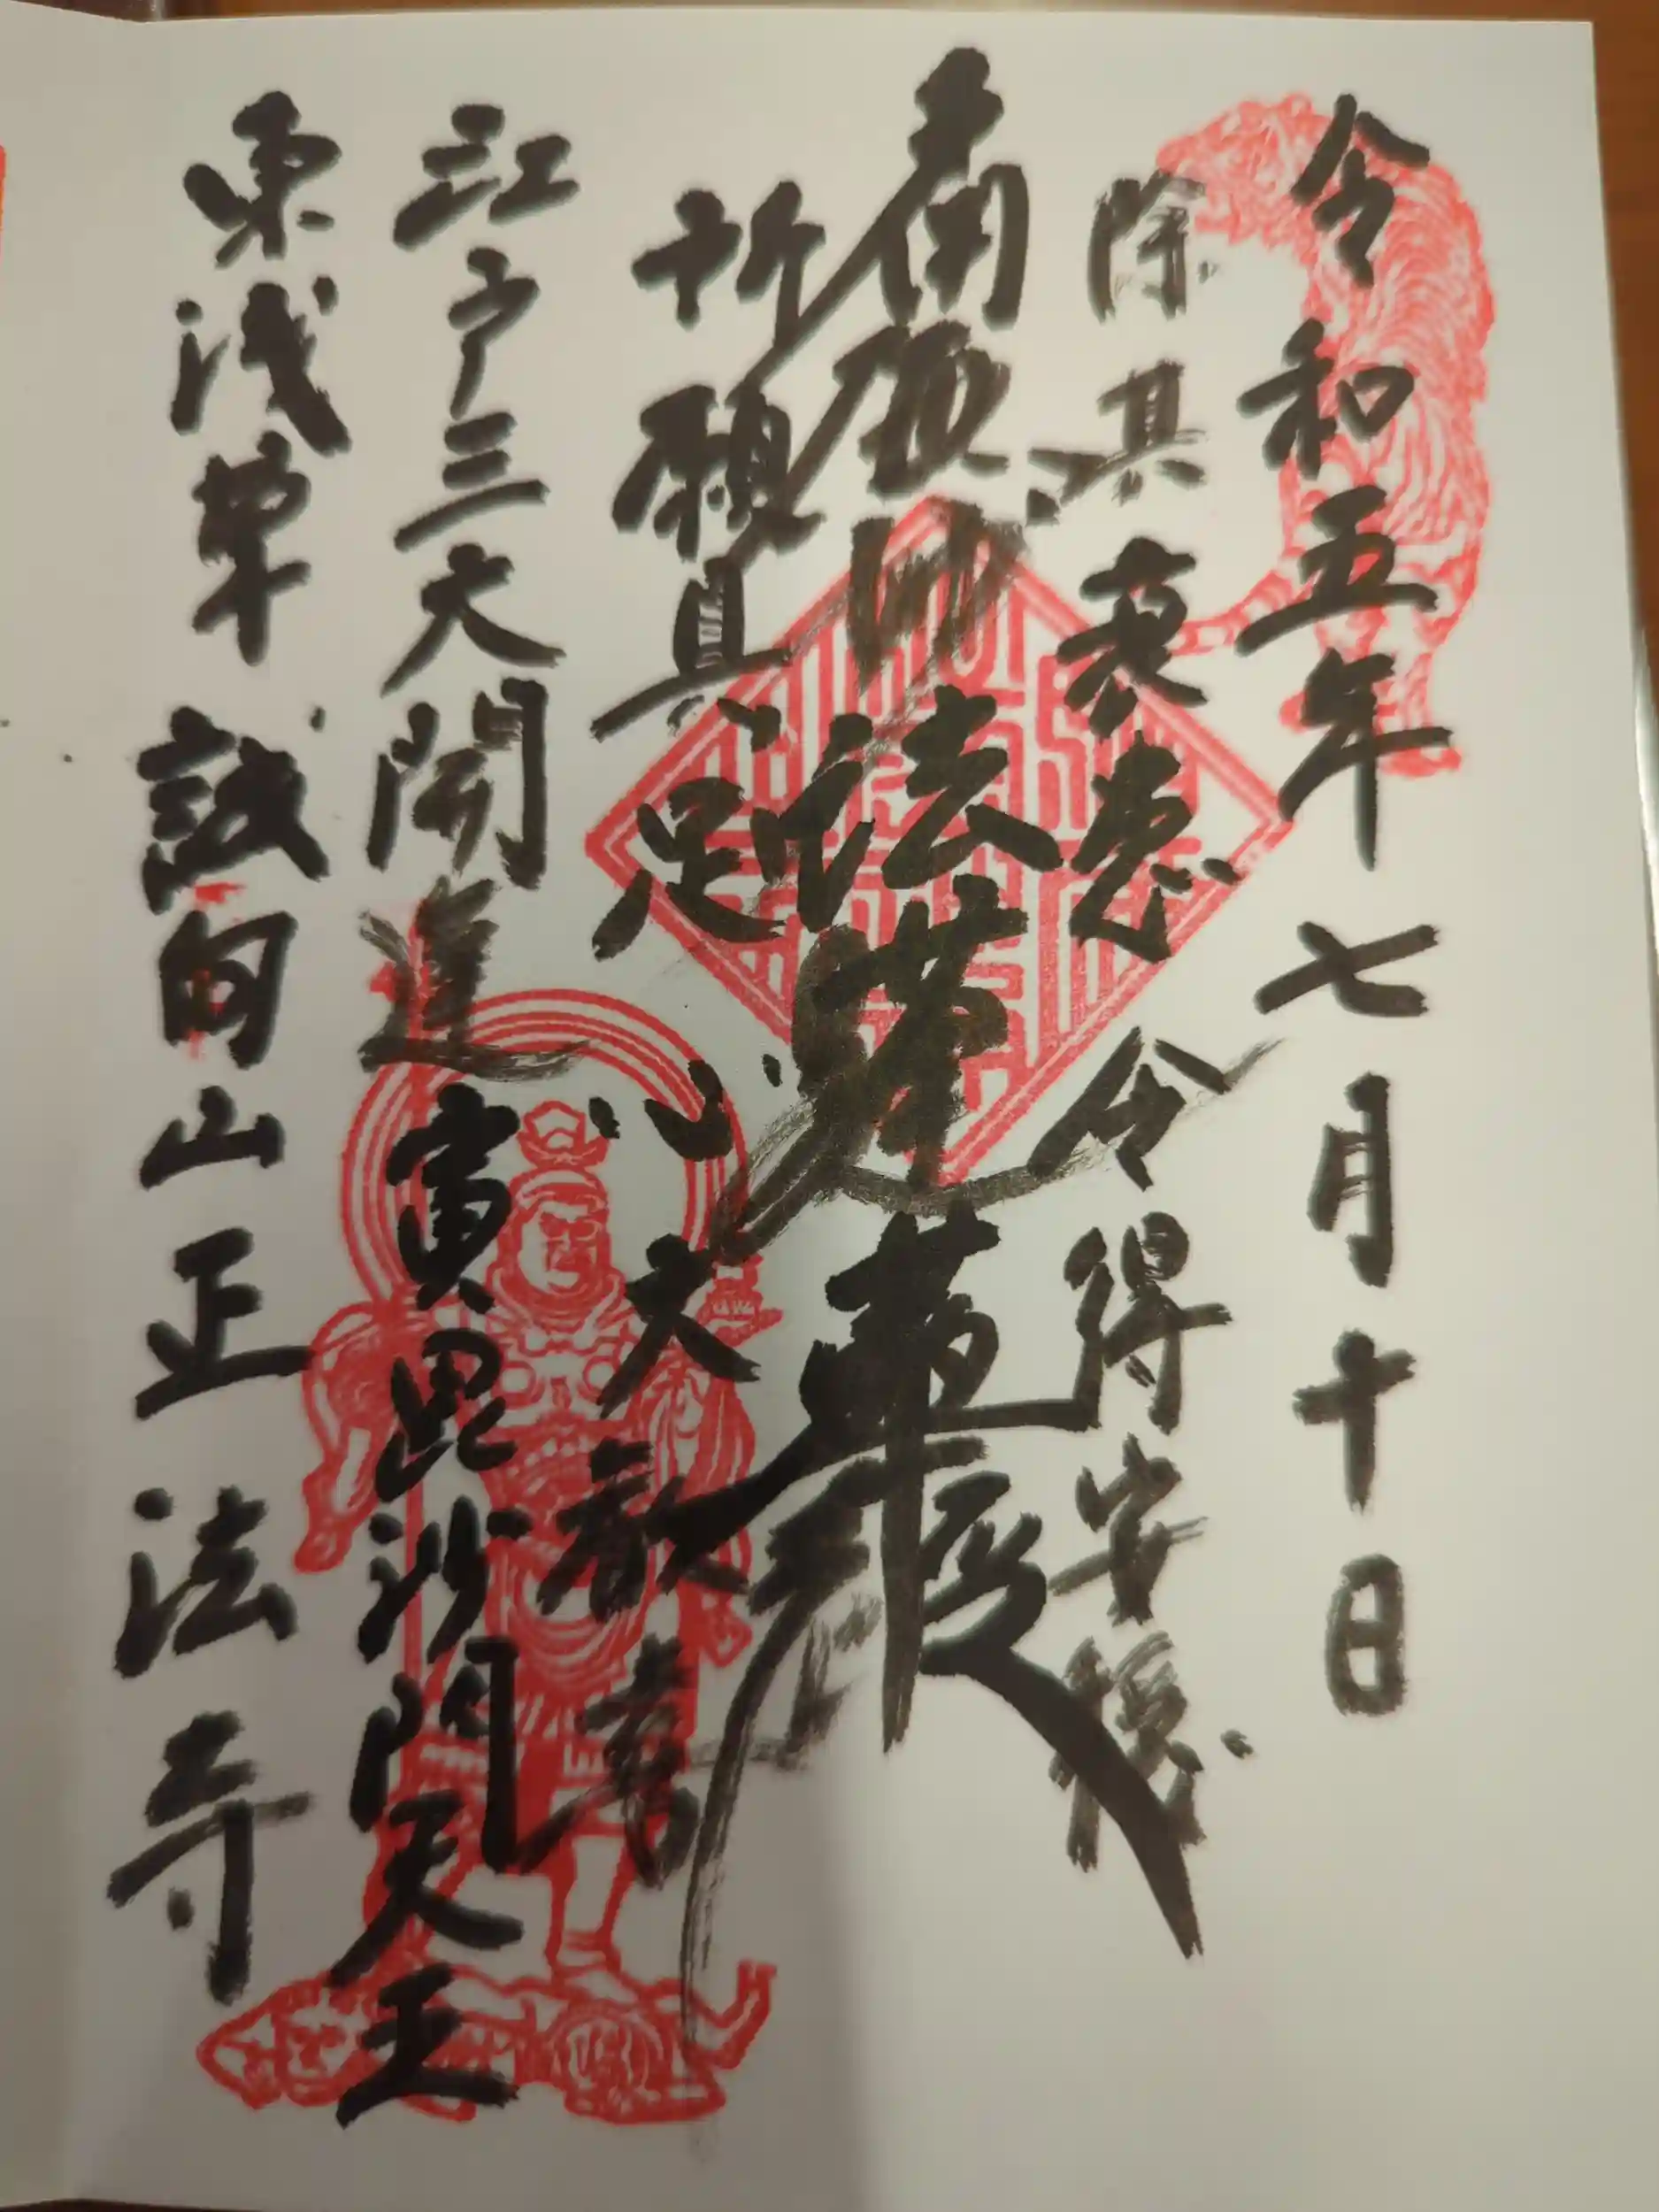 令和五年七月十日
除其衰患 令得安穏
南無妙法蓮華経
所願具足 心大歓喜
江戸三大開運 寅毘沙門天王
東浅草 誠向山正法寺